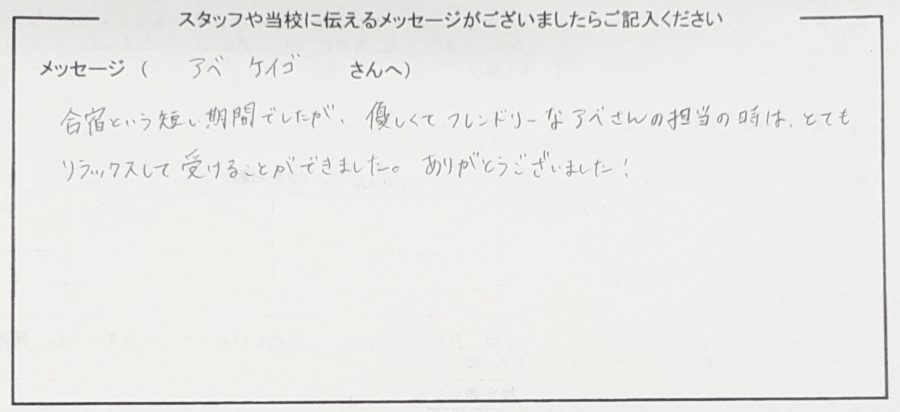 スタッフや当校に伝えるメッセージがございましたらご記入ください
メッセージ ( アベ ケイゴ さんへ)
合宿という短い期間でしたが、優しくてフレンドリーなアベさんの担当の時は、とても
リラックスして受けることができました。ありがとうございました!